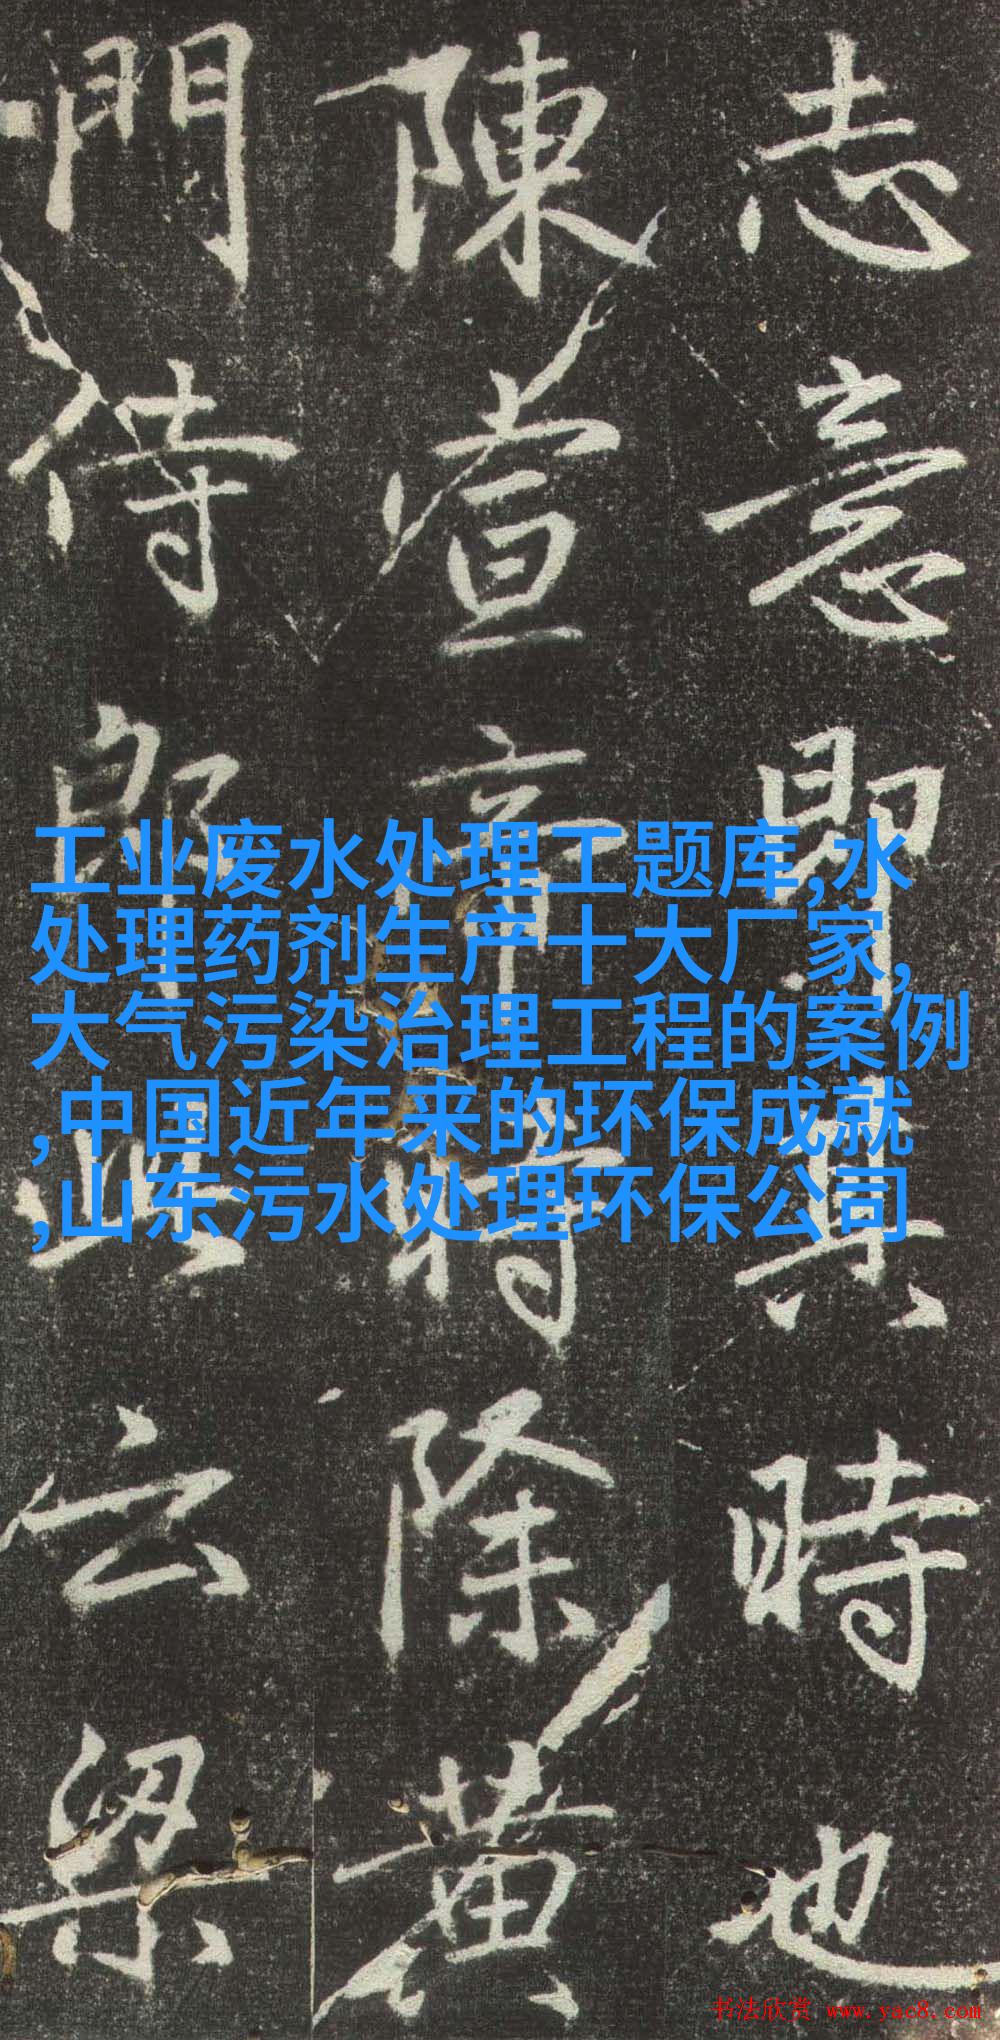 志意即其時也
陳宣帝時除黄
門侍郎此云梁
工业废水处理工题库,水
处理药剂生产十大厂家,
大气污染治理工程的案例
,中国近年来的环保成就
,山东污水处理环保公司
书法欣赏 www.yac8.com